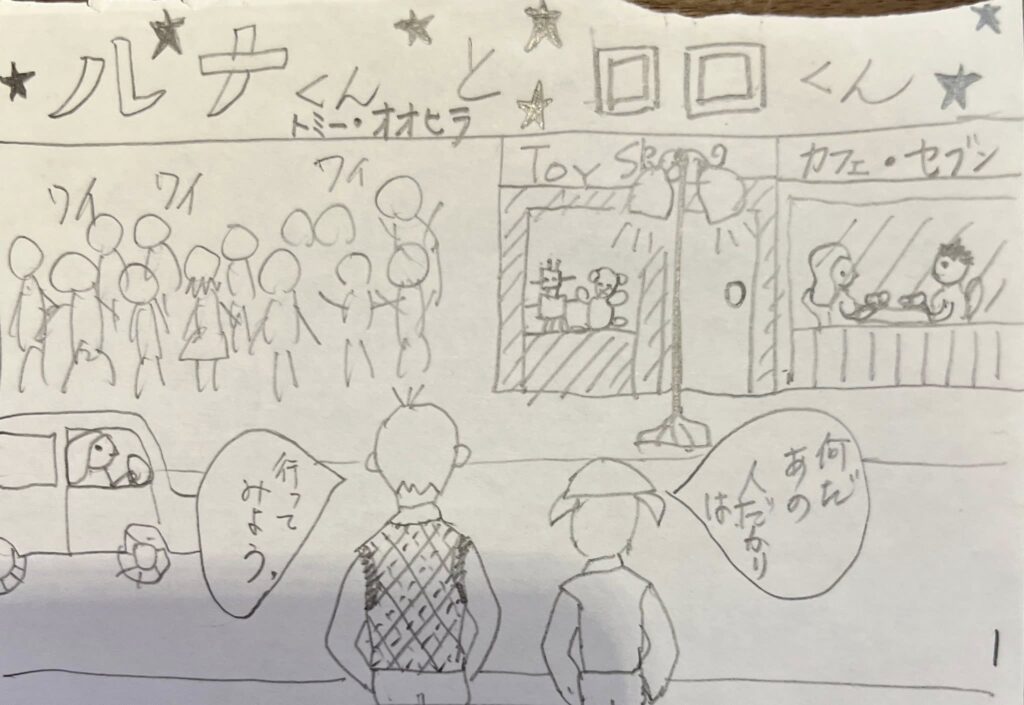 ルナくんとロロくん
トミー・オオヒラ
ワイ
ワイ
ワイ
TOY
カフェ・セブン
何だ
あの
人だかり
は
行って
みよう。
1